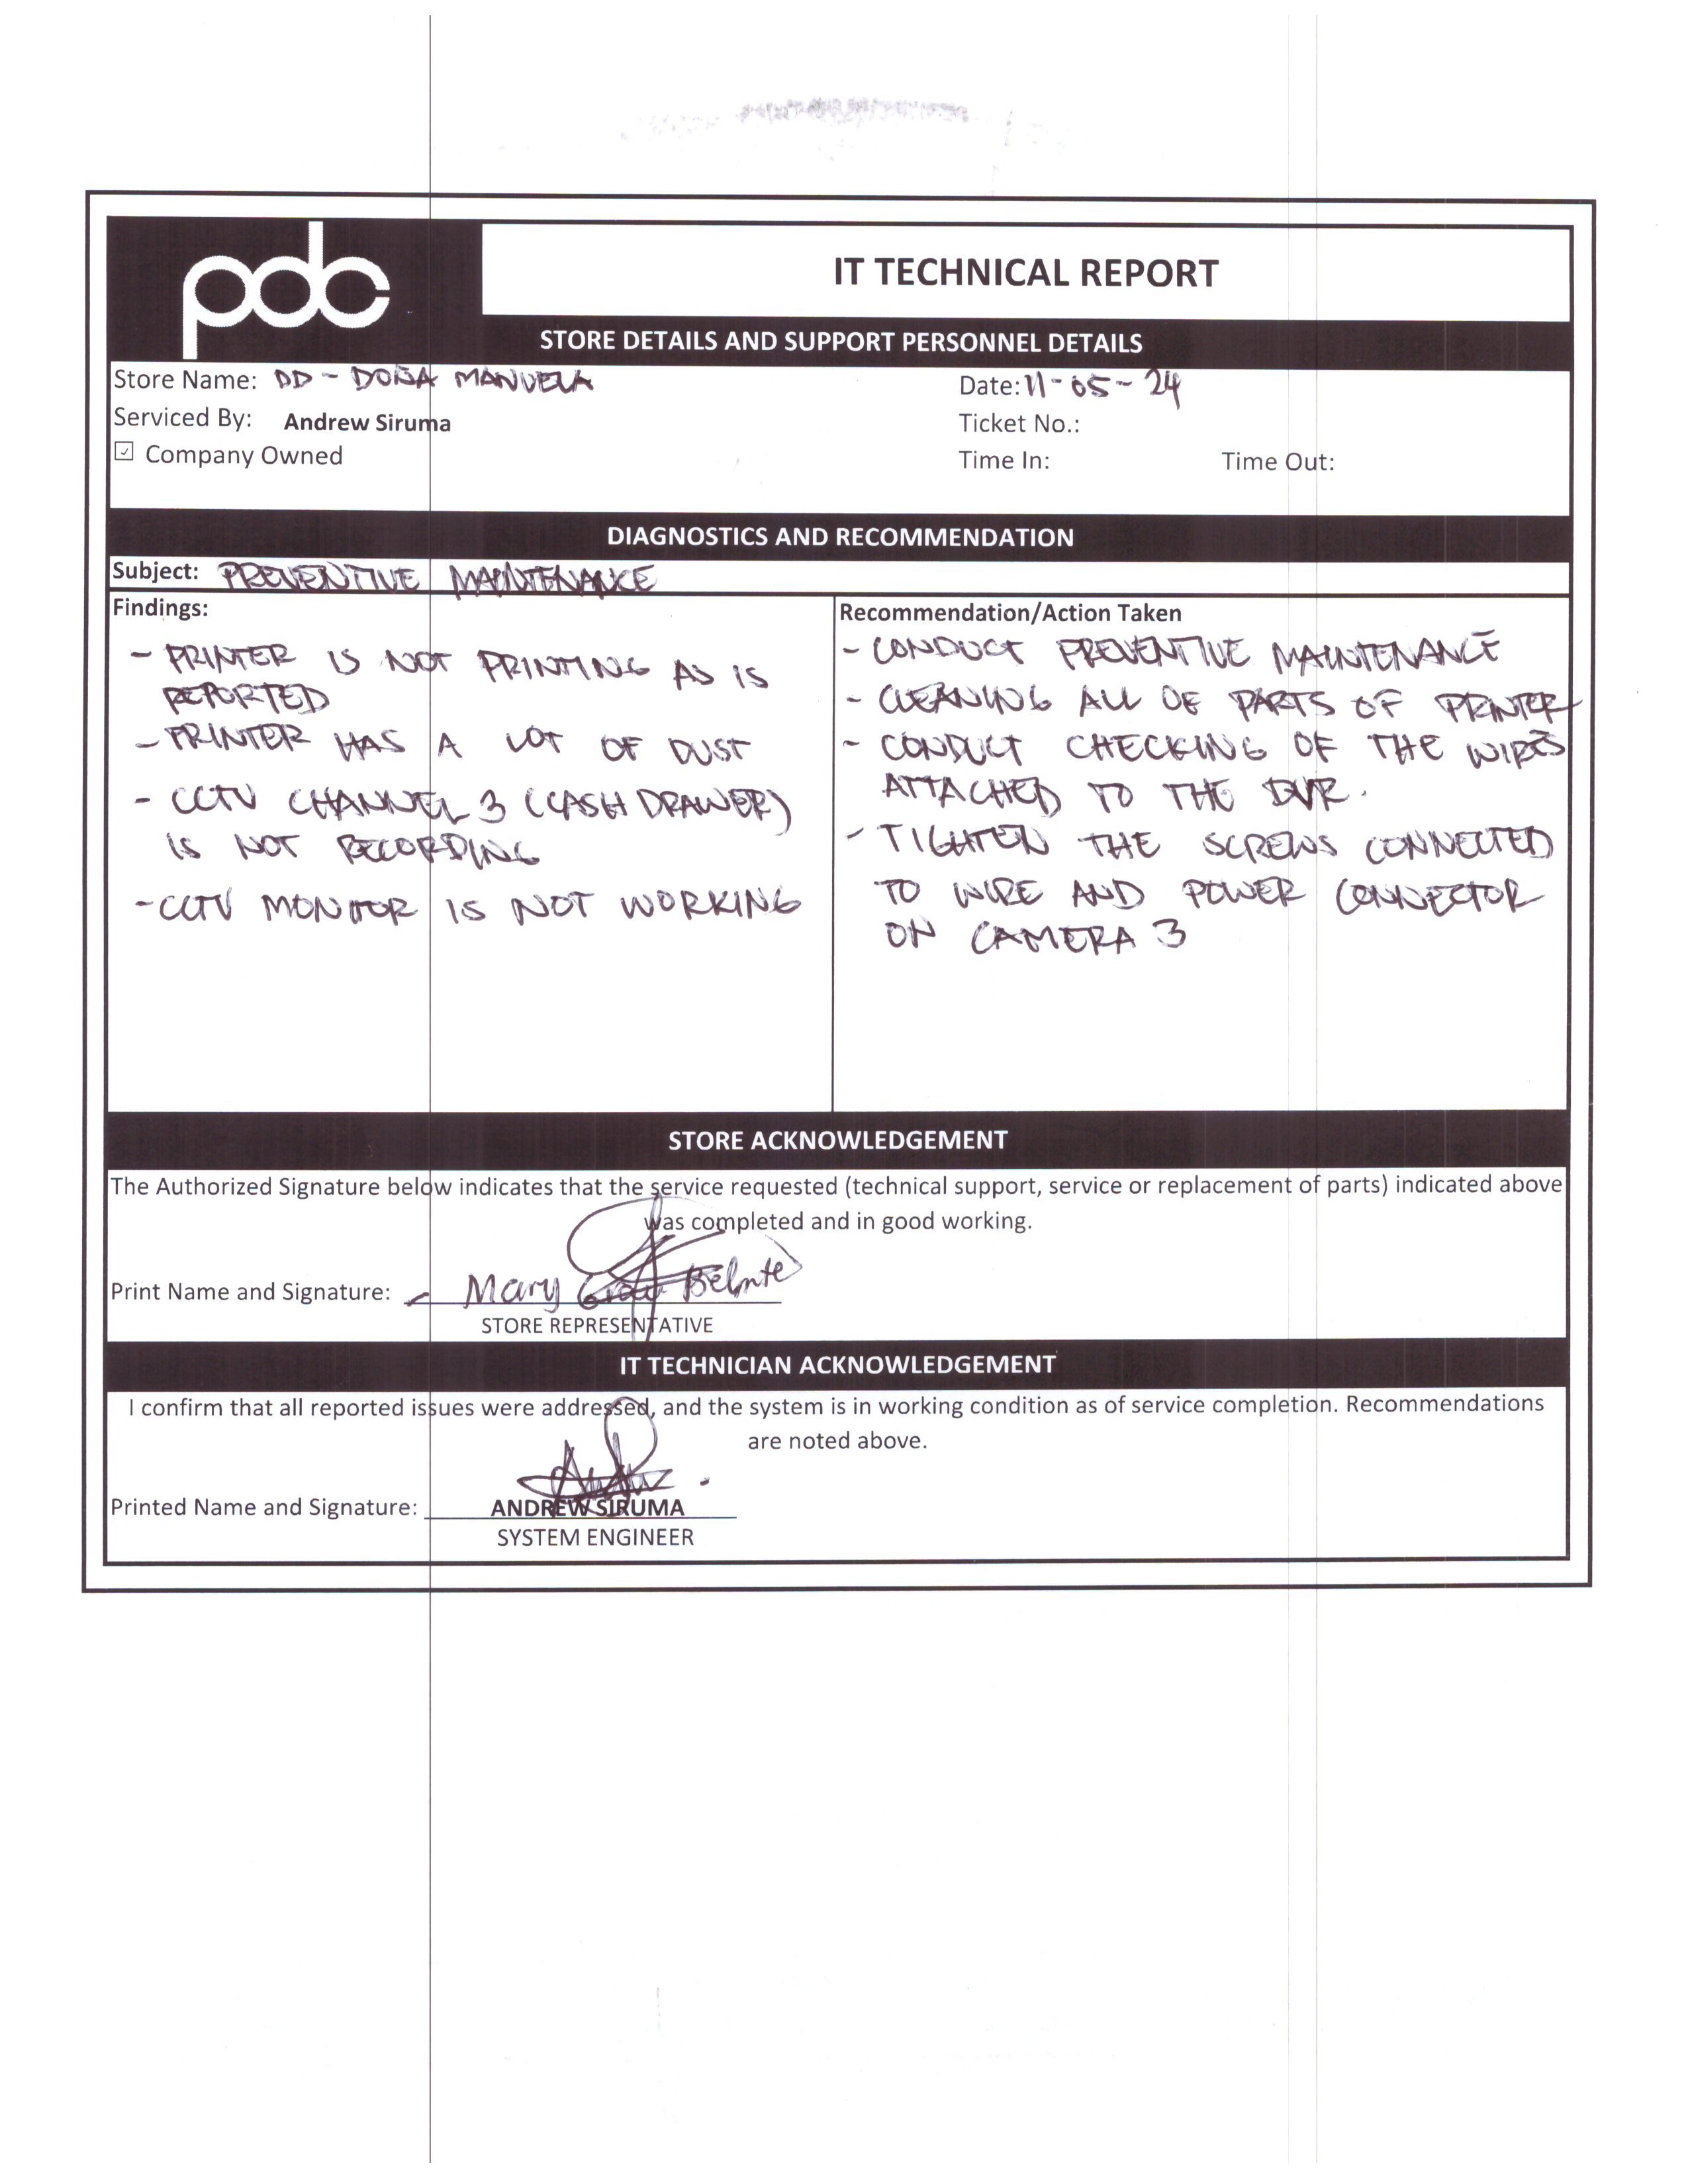 pdc
IT TECHNICAL REPORT
STORE DETAILS AND SUPPORT PERSONNEL DETAILS
Store Name: DD - DOÑA MANUELA
Date: 11-05-24
Serviced By: Andrew Siruma
Ticket No.:
☑ Company Owned
Time In: Time Out:
DIAGNOSTICS AND RECOMMENDATION
Subject: PREVENTIVE MAINTENANCE
Findings:
- PRINTER IS NOT PRINTING AS IS
REPORTED
- PRINTER HAS A LOT OF DUST
- CCTV CHANNEL 3 (CASH DRAWER)
IS NOT RECORDING
- CCTV MONITOR IS NOT WORKING
Recommendation/Action Taken
- CONDUCT PREVENTIVE MAINTENANCE
- CLEANING ALL OF PARTS OF PRINTER
- CONDUCT CHECKING OF THE WIRES
ATTACHED TO THE DVR.
- TIGHTEN THE SCREWS CONNECTED
TO WIRE AND POWER CONNECTOR
ON CAMERA 3
STORE ACKNOWLEDGEMENT
The Authorized Signature below indicates that the service requested (technical support, service or replacement of parts) indicated above
was completed and in good working.
Print Name and Signature: Mary
STORE REPRESENTATIVE
IT TECHNICIAN ACKNOWLEDGEMENT
I confirm that all reported issues were addressed, and the system is in working condition as of service completion. Recommendations
are noted above.
Printed Name and Signature: ANDREW SIRUMA
SYSTEM ENGINEER